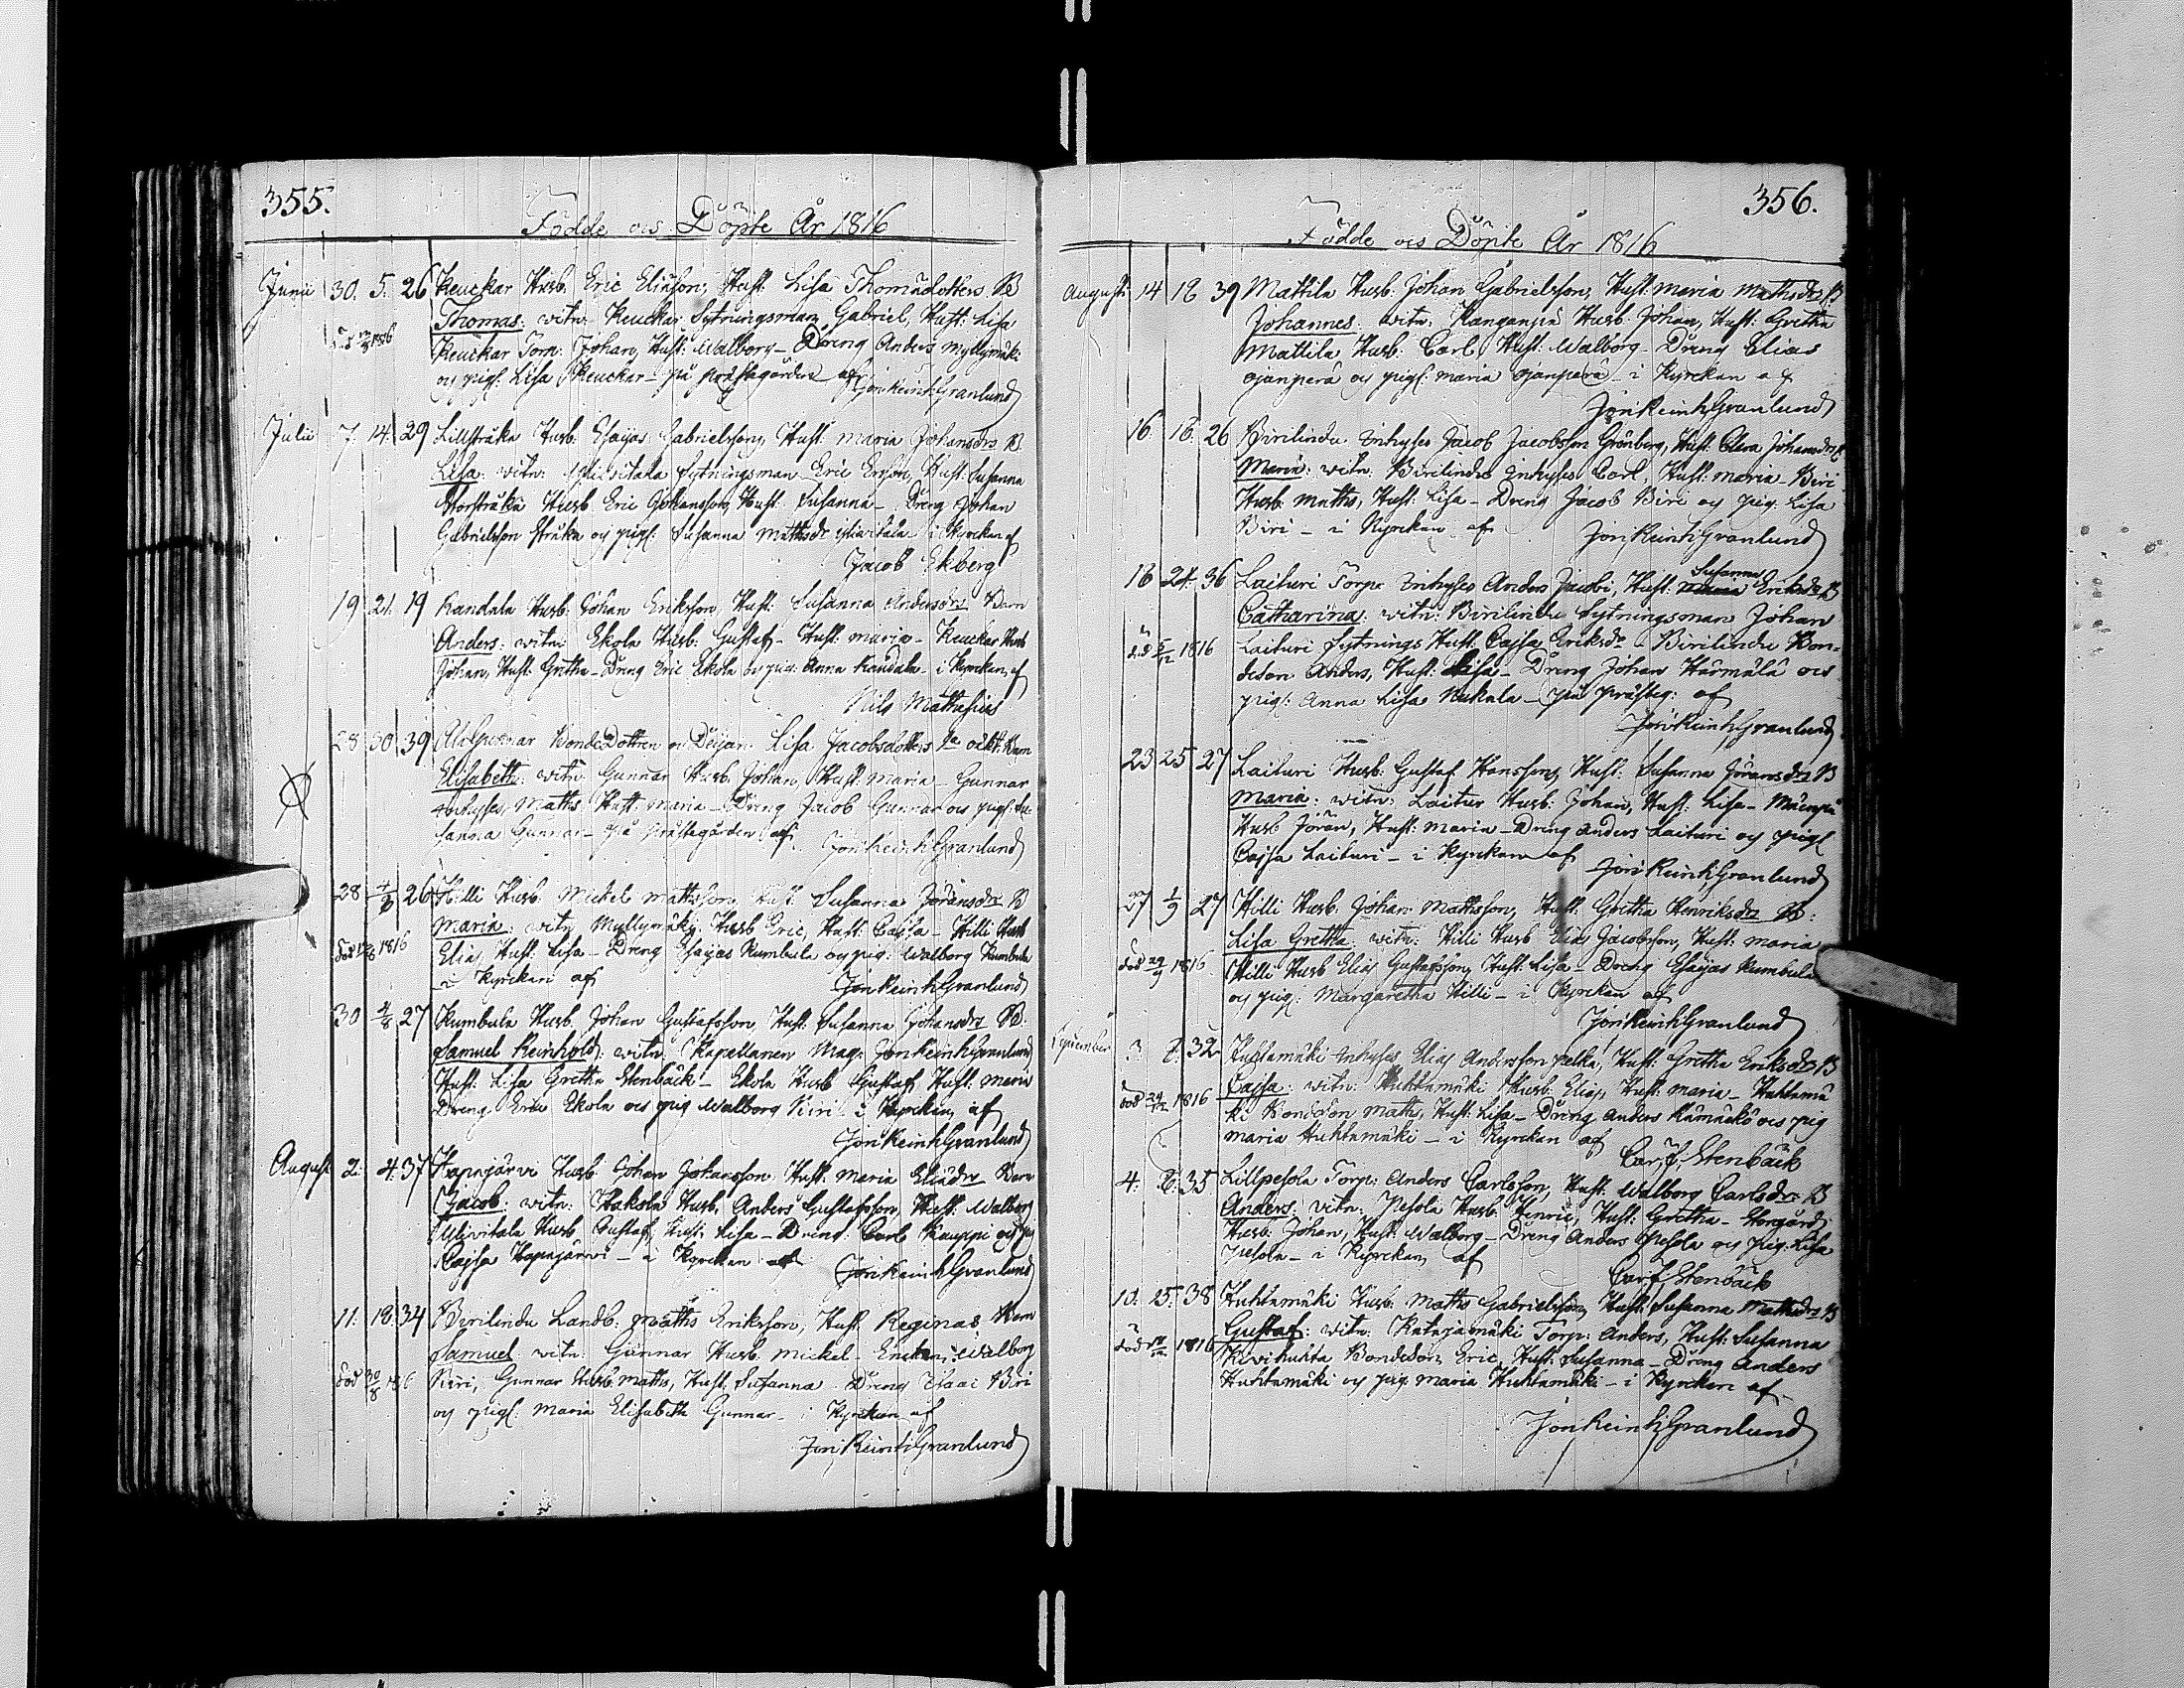 355.
Födde och Döpte År 1816
Junii 30. 5. 26 Keuckar Husb. Eric Eliæson, Hust. Lisa Thomædotters B
Thomas: witn: Keuckar Sytningsman Gabriel, Hust: Lisa
död 1816 Keuckar Torp: Johan, Hust: Walborg - Dreng Anders Myllymäki
och pig: Lisa Keuckar - på prästegården af Jon Reinh Granlund
Julii 7. 14. 29 Lillstråka Husb: Esaias Gabrielsson, Hust: Maria Johansdrs B.
Lisa: witn: Sytningsman Eric Ersson, Hust: Susanna
Storstråka Husb Eric Johansson, Hust: Susanna - Dreng Johan
Gabrielsson Stråka och pig: Susanna Mattsdr - i Kyrckan af
Jacob Ekberg
19 21. 19 Kandala Husb: Johan Eriksson, Hust: Susanna Andersdrs Barn
Anders: witn: Ekola Husb: Gustaf - Hust: Maria - Keuckar Husb
Johan, Hust: Gretha - Dreng Eric Ekola och pig: Anna Kandala - i Kyrckan af
Nils Mathesius
28 30 39 Gunnar BondeDottren Lisa Jacobsdotters oäkt: Barn
Elisabeth: witn: Gunnar Husb: Johan, Hust: Maria - Gunnar
Inhyses Matts Hust: Maria - Dreng Jacob Gunnar och pig: Su-
sanna Gunnar - på Prästegården af Jon Reinh Granlund
28 4/8 26 Hilli Husb: Mickel Mattsson, Hust: Susanna Jöransdrs B
Maria: witn: Myllymäki Husb Eric, Hust: Cajsa - Hilli Husb
död 1816 Elias, Hust: Lisa - Dreng Esaias Kumbula och pig: Walborg Kumbula
i Kyrckan af Jon Reinh Granlund
30 4/8 27 Kumbula Husb: Johan Gustafsson, Hust: Susanna Johansdrs B:
Samuel Reinhold: witn: Kapellanen Mag: Jon Reinh Granlund
Hust: Lisa Gretha Stenbäck - Ekola Husb Gustaf, Hust: Maria
Dreng Eric Ekola och pig Walborg Biri i Kyrckan af
Jon Reinh Granlund
August 2. 4. 37 Hapajärvi Husb: Johan Johansson Hust: Maria Eliædr Barn
Jacob: witn: Hakola Husb. Anders Gustafsson, Hust: Walborg
Ylivitala Husb Gustaf, Hust: Lisa - Dreng: Carl Kauppi och pig
Cajsa Hapajärvi - i Kyrckan af Jon Reinh Granlund
11. 18. 34 Birilindu Landb: Matts Eriksson, Hust: Reginas Barn
Samuel: witn: Gunnar Husb: Mickel - Enckan: Walborg
död 30/8 1816 Biri, Gunnar Husb: Matts, Hust: Susanna - Dreng Isaac Biri
och pig: Maria Elisabeth Gunnar - i Kyrckan af
Jon Reinh Granlund
356.
Födde och Döpte År 1816
Augusti 14 18 39 Mattila Husb: Johan Gabrielsson, Hust: Maria Mattsdrs B
Johannes: witn: Kanganpä Husb: Johan, Hust: Gretha
Mattila Husb: Carl, Hust: Walborg - Dreng Elias
Ojanperä och pig: Maria Ojanperä - i Kyrckan af
Jon Reinh Granlund
16. 18. 26 Birilindu Inhyses Jacob Jacobsson Grönberg, Hust: Clara Johansdrs B
Maria: witn: Birilindu Inhyses Carl, Hust: Maria - Biri
Husb: Matts, Hust: Lisa - Dreng Jacob Biri och pig: Lisa
Biri - i Kyrckan af Jon Reinh Granlund
16 24. 36 Laituri Torp: Inhyses Anders Jacobi, Hust: Susanna Eriksdrs B
Catharina: witn: Birilindu Sytningsman Johan
död 5/12 1816 Laituri Sytnings Hust: Cajsa Eriksdr - Birilindu Bon-
deson Anders, Hust: Lisa - Dreng Johan Härmälä och
pig: Anna Lisa Nukala - på prästeg: af
Jon Reinh Granlund
23 25 27 Laituri Husb: Gustaf Hansson, Hust: Susanna Jöransdrs B
Maria: witn: Laituri Husb: Johan, Hust: Lisa - Mäenpä
Husb: Jöran, Hust: Maria - Dreng Anders Laituri och pig:
Cajsa Laituri - i Kyrckan af Jon Reinh Granlund
27 1/9 27 Hilli Husb: Johan Mattsson, Hust: Gretha Henriksdrs B:
Lisa Gretha: witn: Hilli Husb Elias Jacobsson, Hust: Maria
död 29/9 1816 Hilli Husb Elias Gustafsson, Hust: Lisa - Dreng Esaias Kumbula
och pig: Margaretha Hilli - i Kyrckan af
Jon Reinh Granlund
September 3. 8. 32 Huhtamäki Inhyses Elias Andersson Pelka, Hust: Gretha Eriksdrs B
Cajsa: witn: Huhtamäki Husb: Elias, Hust: Maria - Huhtamä
död 24/12 1816 ki Bondeson Matts, Hust: Lisa - Dreng Anders Kämäckö och pig
Maria Huhtamäki - i Kyrckan af
Car. F. Stenbäck
4. 8. 35 Lillpesola Torp: Anders Carlsson, Hust: Walborg Carlsdrs B
Anders: witn: Pesola Husb: Henric, Hust: Gretha - Storgård
Husb: Johan, Hust: Walborg - Dreng Anders Pesola och pig: Lisa
Pesola - i Kyrckan af
Car. F. Stenbäck
10. 15. 38 Huhtamäki Husb: Matts Gabrielsson, Hust: Susanna Mattsdrs B
Gustaf: witn: Katajamäki Torp: Anders, Hust: Susanna
död 1816 Kivihuhta Bondeson Eric, Hust: Susanna - Dreng Anders
Huhtamäki och pig Maria Huhtamäki - i Kyrckan af
Jon Reinh Granlund